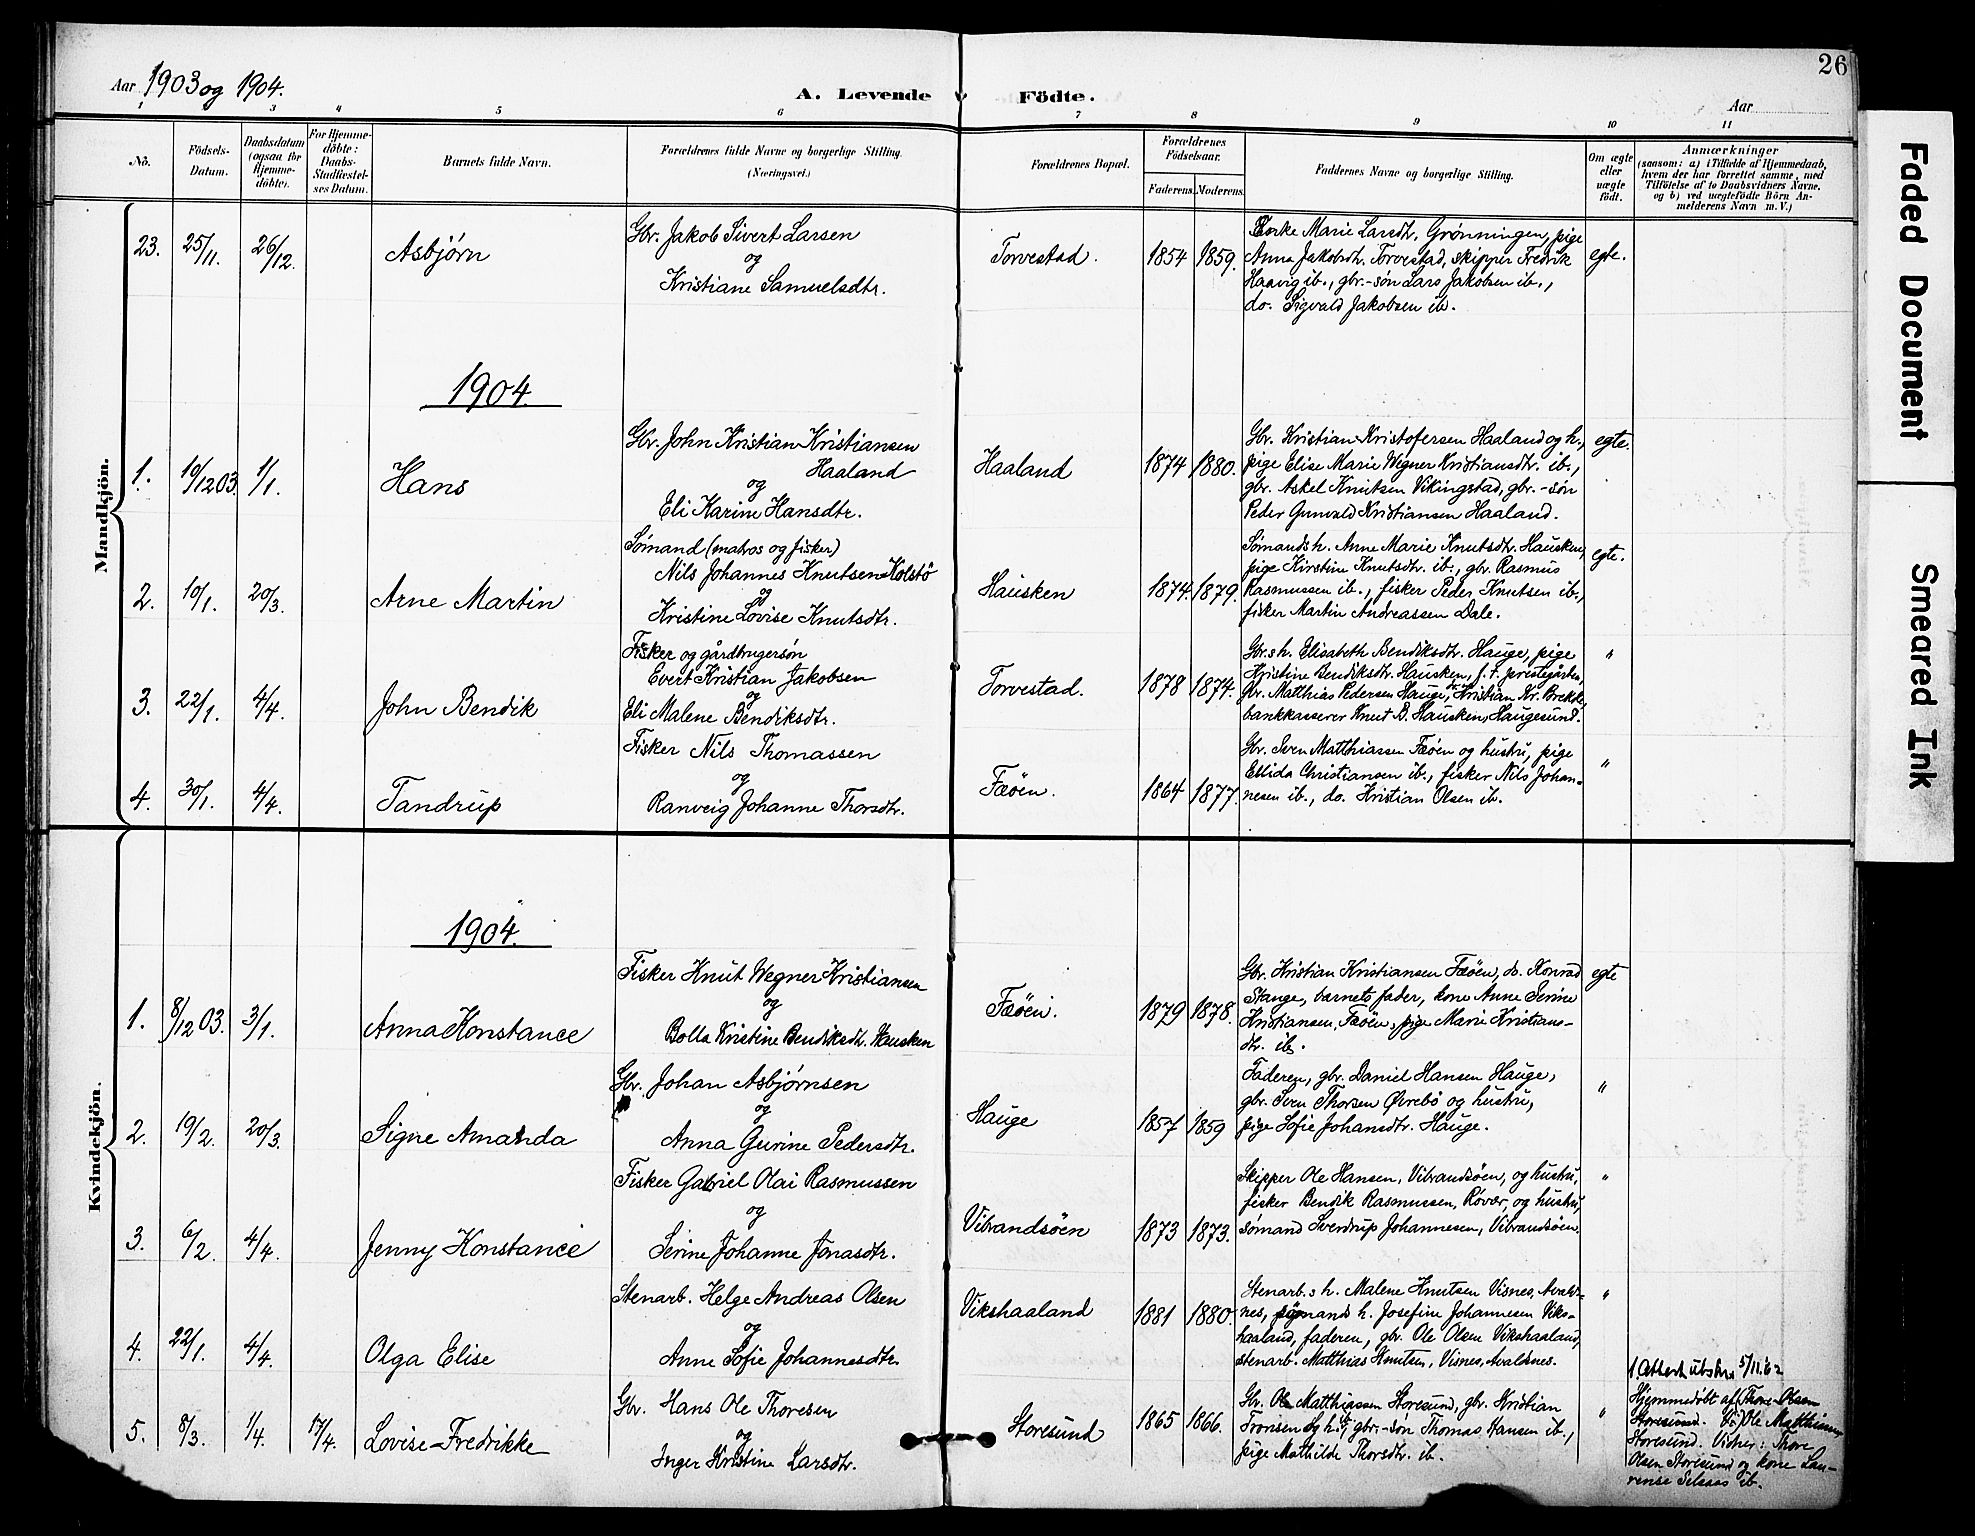 26
Aar 1903 og 1904.
A. Levende Födte.
Aar
1 3 4 5 6 7 8 9 10 11
No.
Födsels-
Datum.
Daabsdatum
(ogsaa for
Hjemme-
döbte).
For Hjemme-
döbte:
Daabs-
Stadfæstel-
ses Datum.
Barnets fulde Navn.
Forældrenes fulde Navne og borgerlige Stilling.
(Næringsvei.)
Forældrenes Bopæl.
Forældrenes
Födselsaar.
Faderens. Moderens.
Faddernes Navne og borgerlige Stilling.
Om ægte
eller
uægte
födt.
Anmærkninger
(saasom: a) i Tilfælde af Hjemmedaab,
hvem der har forrettet samme, med
Tilföielse af to Daabsvidners Navne,
og b) ved uægtefödte Börn An-
melderens Navn m. V.)
Mandkjön.
23. 25/11. 26/12. Asbjørn
Gbr. Jakob Sivert Larsen
og
Kristiane Samuelsdtr.
Torvestad. 1854 1859.
Marie Larsdtr. Grønningen, pige
Anna Jakobsdtr. Torvestad, skipper Fredrik
Haavig ib., gbr.-søn Lars Jakobsen ib.,
do. Sigvald Jakobsen ib.
egte.
1904.
1. 10/12 03. 1/1. Hans
Gbr. John Kristian Kristiansen
Haaland
og
Eli Karine Hansdtr.
Haaland 1874 1880.
Gbr. Kristian Kristofersen Haaland og h.,
pige Elise Marie Wegner Kristiansdtr. ib.,
gbr. Askel Knutsen Vikingstad, gbr.-søn
Peder Gunvald Kristiansen Haaland.
egte.
2. 10/1. 20/3. Arne Martin
Sømand (matros og fisker)
Nils Johannes Knutsen Kolstø
og
Kristine Lovise Knutsdtr.
Hausken 1874. 1879.
Sømands h. Anne Marie Knutsdtr. Hausken,
pige Kirstine Knutsdtr. ib., gbr. Rasmus
Rasmussen ib., fisker Peder Knutsen ib.,
fisker Martin Andreassen Dale.
egte.
3. 22/1. 4/4. John Bendik
Fisker og gårdbrugersøn
Evert Kristian Jakobsen
og
Eli Malene Bendiksdtr.
Torvestad. 1878 1874.
Gbr.s h. Elisabeth Bendiksdtr. Hauge, pige
Kristine Bendiksdtr. Hausken, f. t. prestegården,
gbr. Matthias Pedersen Hauge, do. Kristian Kr. Brekke,
bankkasserer Knut B. Hausken, Haugesund.
"
4. 30/1. 4/4. Tandrup
Fisker Nils Thomassen
og
Ranveig Johanne Thorsdtr.
Fæøen. 1864 1877.
Gbr. Sven Matthiassen Fæøen og hustru, pige
Ellida Christiansen ib., fisker Nils Johan-
nesen ib., do. Kristian Olsen ib.
"
Kvindekjön.
1904.
1. 8/12 03. 3/1. Anna Konstance
Fisker Knut Wegner Kristiansen
og
Bolla Kristine Bendiksdtr. Hausken
Fæøen. 1879 1878.
Gbr. Kristian Kristiansen Fæøen, do. Konrad
Stange, barnets fader, kone Anne Serine
Kristiansen, Fæøen, pige Marie Kristians-
dtr. ib.
egte
2. 19/2. 20/3. Signe Amanda
Gbr. Johan Asbjørnsen
og
Anna Gurine Pedersdtr.
Hauge 1857 1859
Faderen, gbr. Daniel Hansen Hauge,
gbr. Sven Thorsen Øvrebö og hustru,
pige Sofie Johansdtr. Hauge.
"
3. 6/2. 4/4. Jenny Konstance
Fisker Gabriel Olai Rasmussen
og
Serine Johanne Jonasdtr.
Vibrandsøen 1873 1873.
Skipper Ole Hansen, Vibrandsøen, og hustru,
fisker Bendik Rasmussen, Røvær, og hustru,
sømand Sverdrup Johannesen, Vibrandsøen.
"
4. 22/1. 4/4. Olga Elise
Stenarb. Helge Andreas Olsen
og
Anne Sofie Johannesdtr.
Vikshaaland 1881 1880.
Stenarb.s h. Malene Knutsen Visnes, Avalds-
nes, sømands h. Josefine Johannesen Viks-
haaland, faderen, gbr. Ole Olsen Vikshaaland,
stenarb. Matthias Knutsen, Visnes, Avaldsnes.
"
5. 8/3. 1/4. 17/4. Lovise Fredrikke
Gbr. Hans Ole Thoresen
og
Inger Kristine Larsdtr.
Storesund 1865 1866.
Gbr. Ole Matthiassen Storesund, gbr. Kristian
Tronsen og h. ib., gbr.-søn Thomas Hansen ib.,
pige Mathilde Thorsdtr. ib.
"
1 Attest utskr. 5/11.62
Hjemmedöbt af (Thore Olsen
Storesund. Vi) Ole Matthiassen
Storesund. Vidner: Thore
Olsen Storesund og kone Lau-
rense Selaas ib.
Faded Document
Smeared Ink